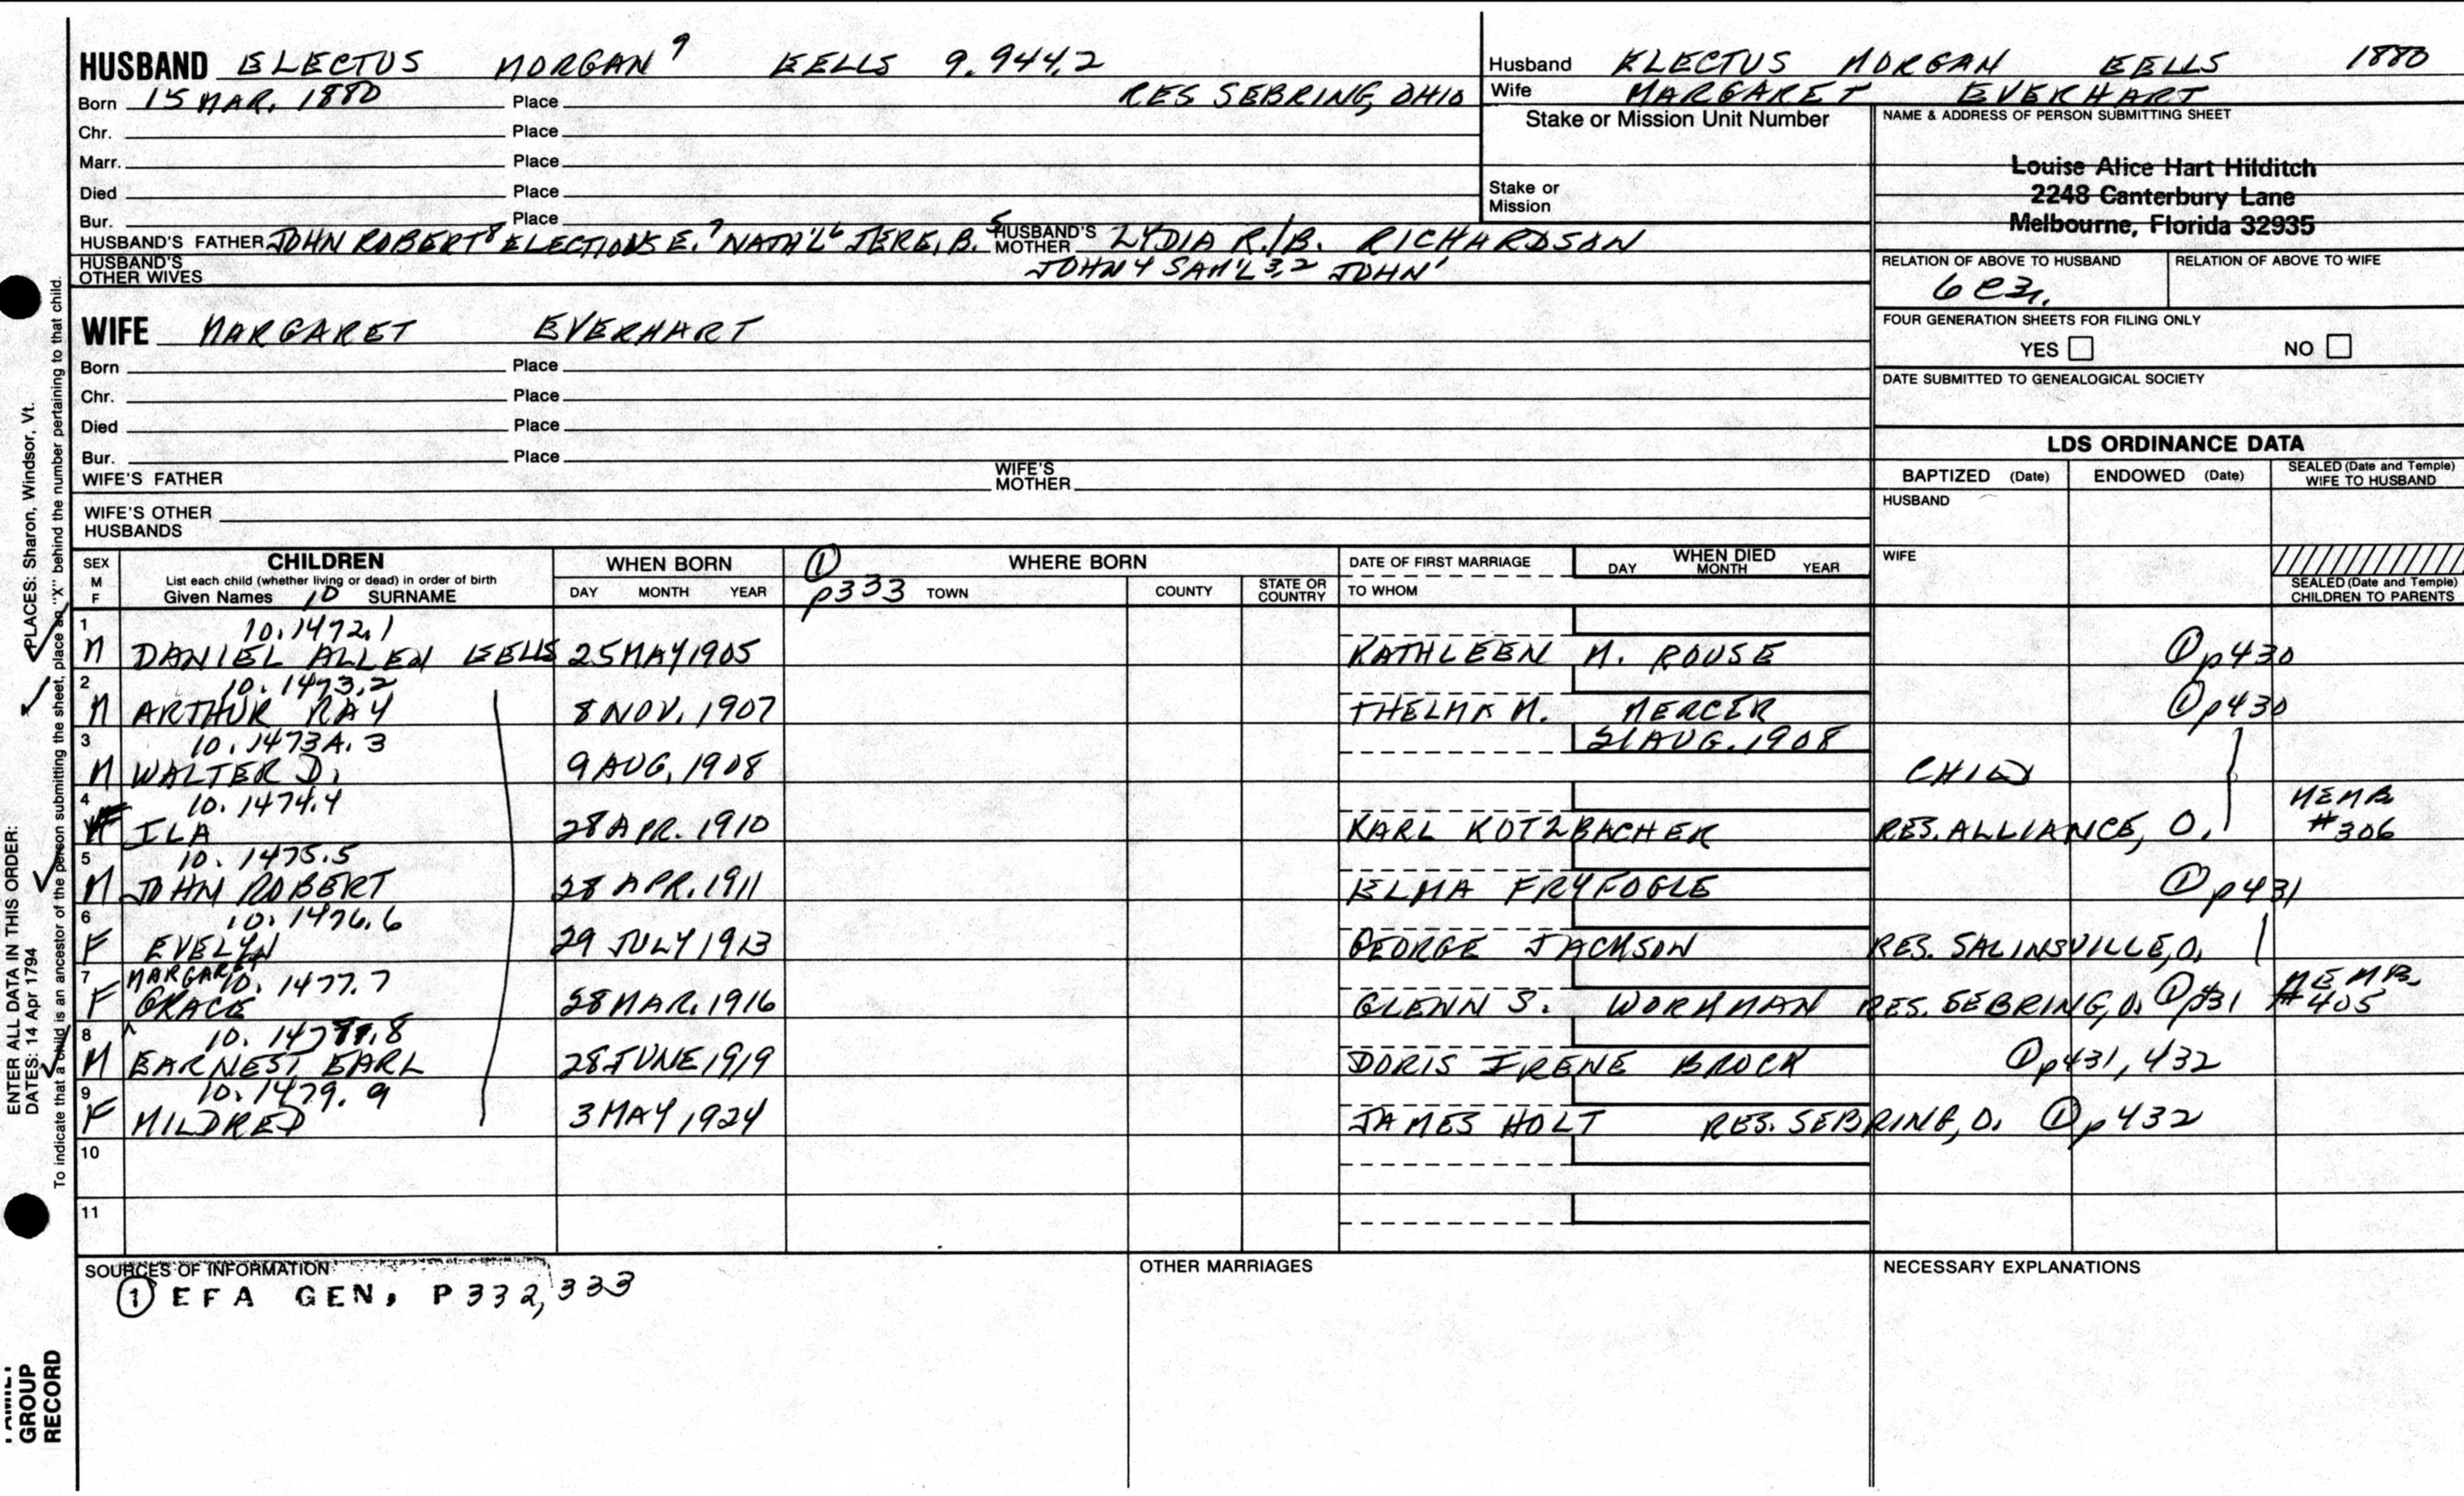 HUSBAND ELECTUS MORGAN 9 EELLS 9.944.2
Born 15 MAR. 1880 Place RES SEBRING, OHIO
Chr. Place
Marr. Place
Died Place
Bur. Place
HUSBAND'S FATHER JOHN ROBERT 8 ELECTIONS E. 7 NATH'L 6 JERE. B. 5 HUSBAND'S MOTHER LYDIA R./B. RICHARDSON
HUSBAND'S OTHER WIVES JOHN 4 SAM'L 3,2 JOHN 1
Husband ELECTUS MORGAN EELLS 1880
Wife MARGARET EVERHART
Stake or Mission Unit Number
Stake or Mission
NAME & ADDRESS OF PERSON SUBMITTING SHEET
Louise Alice Hart Hilditch
2248 Canterbury Lane
Melbourne, Florida 32935
RELATION OF ABOVE TO HUSBAND RELATION OF ABOVE TO WIFE
FOUR GENERATION SHEETS FOR FILING ONLY
YES NO
DATE SUBMITTED TO GENEALOGICAL SOCIETY
WIFE MARGARET EVERHART
Born Place
Chr. Place
Died Place
Bur. Place
WIFE'S FATHER WIFE'S MOTHER
WIFE'S OTHER HUSBANDS
LDS ORDINANCE DATA
BAPTIZED (Date) ENDOWED (Date) SEALED (Date and Temple) WIFE TO HUSBAND
HUSBAND
WIFE
SEALED (Date and Temple) CHILDREN TO PARENTS
SEX M F
CHILDREN
List each child (whether living or dead) in order of birth
Given Names 10 SURNAME
WHEN BORN
DAY MONTH YEAR
① p333
WHERE BORN
TOWN COUNTY STATE OR COUNTRY
DATE OF FIRST MARRIAGE
TO WHOM
WHEN DIED
DAY MONTH YEAR
1 10.1472.1
M DANIEL ALLEN EELLS 25 MAY 1905 KATHLEEN M. ROUSE ① p430
2 10.1473.2
M ARTHUR RAY 8 NOV. 1907 THELMA M. MERCER ① p430
3 10.1473A.3 21 AUG. 1908
M WALTER D. 9 AUG. 1908 CHILD
4 10.1474.4 MEMB.
F ILA 28 APR. 1910 KARL KOTZBACHER RES. ALLIANCE, O. #306
5 10.1475.5
M JOHN ROBERT 28 APR. 1911 ELMA FRYFOGLE ① p431
6 10.1476.6
F EVELYN 29 JULY 1913 GEORGE JACKSON RES. SALINSVILLE, O.
7 MARGARET 10.1477.7 MEMB.
F GRACE 28 MAR. 1916 GLENN S. WORKMAN RES. SEBRING, O. ① p431 #405
8 10.1478.8
M EARNEST EARL 28 JUNE 1919 DORIS IRENE BROCK ① p431, 432
9 10.1479.9
F MILDRED 3 MAY 1924 JAMES HOLT RES. SEBRING, O. ① p432
10
11
SOURCES OF INFORMATION
① EFA GEN, P332, 333
OTHER MARRIAGES
NECESSARY EXPLANATIONS
ENTER ALL DATA IN THIS ORDER:
DATES: 14 Apr 1794 PLACES: Sharon, Windsor, Vt.
To indicate that a child is an ancestor of the person submitting the sheet, place an "X" behind the number pertaining to that child.
GROUP
RECORD